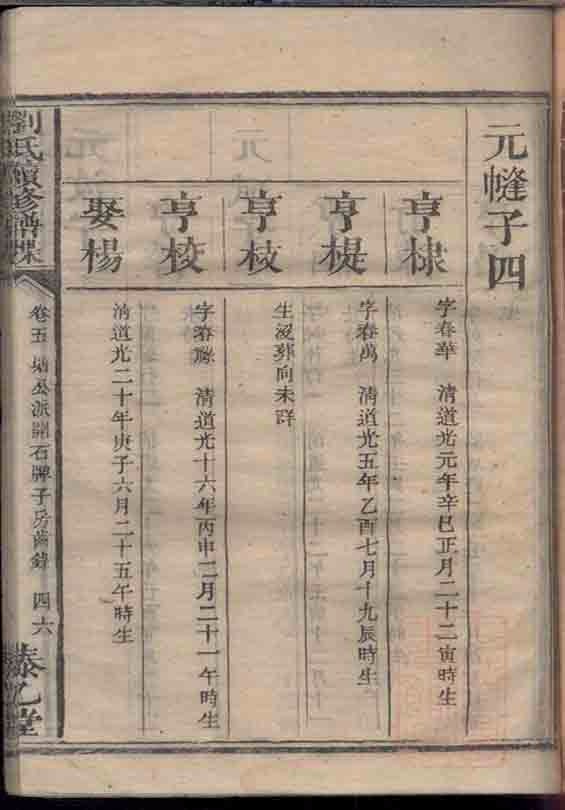 元㡒子四
亨棣
字春華 清道光元年辛巳正月二十二寅時生
亨㮛
字春萬 清道光五年乙酉七月十九辰時生
亨枝
生沒葬向未詳
亨校
字春 清道光十六年丙申二月二十一午時生
娶楊
清道光二十年庚子六月二十五午時生
劉氏續修譜牒
卷五 公派開石牌子房齒錄 四六
藜乙堂